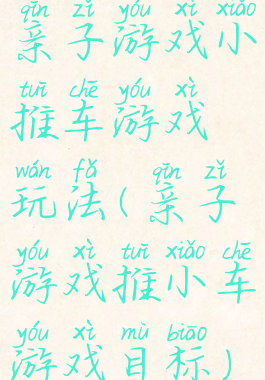 qīn zǐ yóu xì xiǎo
亲子游戏小
tuī chē yóu xì
推车游戏
wán fǎ qīn zǐ
玩法(亲子
yóu xì tuī xiǎo chē
游戏推小车
yóu xì mù biāo
游戏目标)